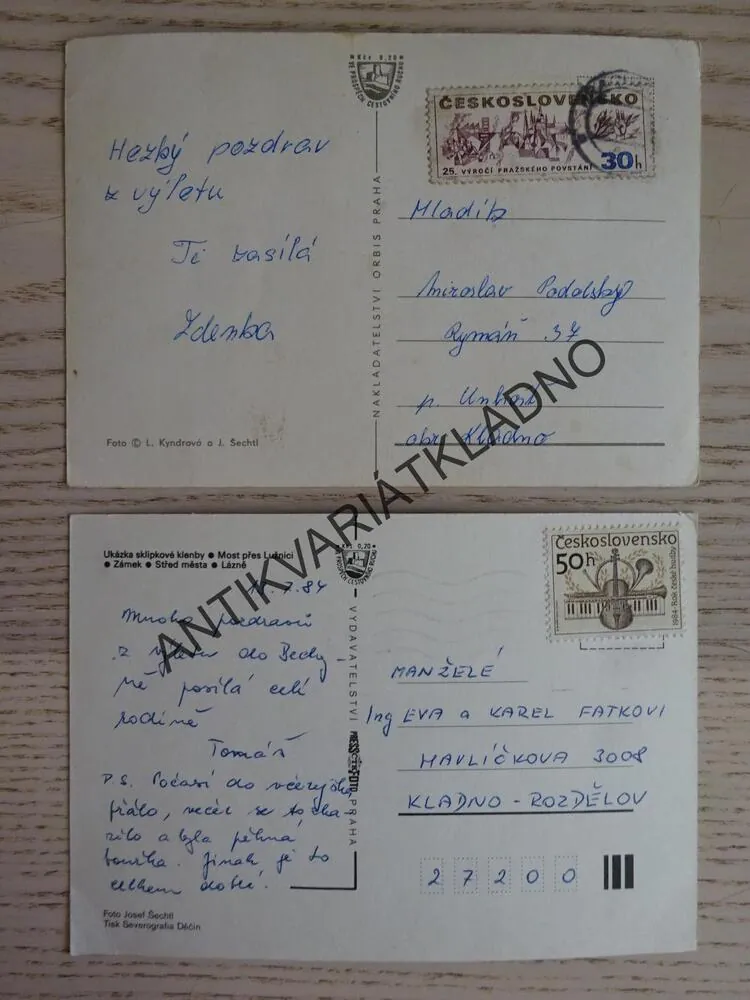 Kčs 0,20
VE PROSPĚCH CESTOVNÍHO RUCHU
ČESKOSLOVENSKO
30h
25. VÝROČÍ PRAŽSKÉHO POVSTÁNÍ
Hezký pozdrav
z výletu
Ti zasílá
Zdenka
NAKLADATELSTVÍ ORBIS PRAHA
Mladík
Miroslav Podolský
Rymáň 37
p. Unhošť
okr. Kladno
Foto © L. Kyndrová a J. Šechtl
ANTIKVARIÁTKLADNO
Ukázka sklípkové klenby ● Most přes Lužnici
● Zámek ● Střed města ● Lázně
Kčs 0,20
VE PROSPĚCH CESTOVNÍHO RUCHU
Československo
50h
1984-Rok české hudby
.7.84
Mnoho pozdravů
z výletu do Bechy
ně posílá celé
rodině
Tomáš
P.S. Počasí do včerejška
přálo, večer se to zka
zilo a byla pěkná
bouřka. Jinak je to
celkem dobré.
VYDAVATELSTVÍ
PRESSFOTO
PRAHA
MANŽELÉ
Ing EVA a KAREL FATKOVI
HAVLÍČKOVA 3008
KLADNO - ROZDĚLOV
2 7 2 0 0
Foto Josef Šechtl
Tisk Severografia Děčín